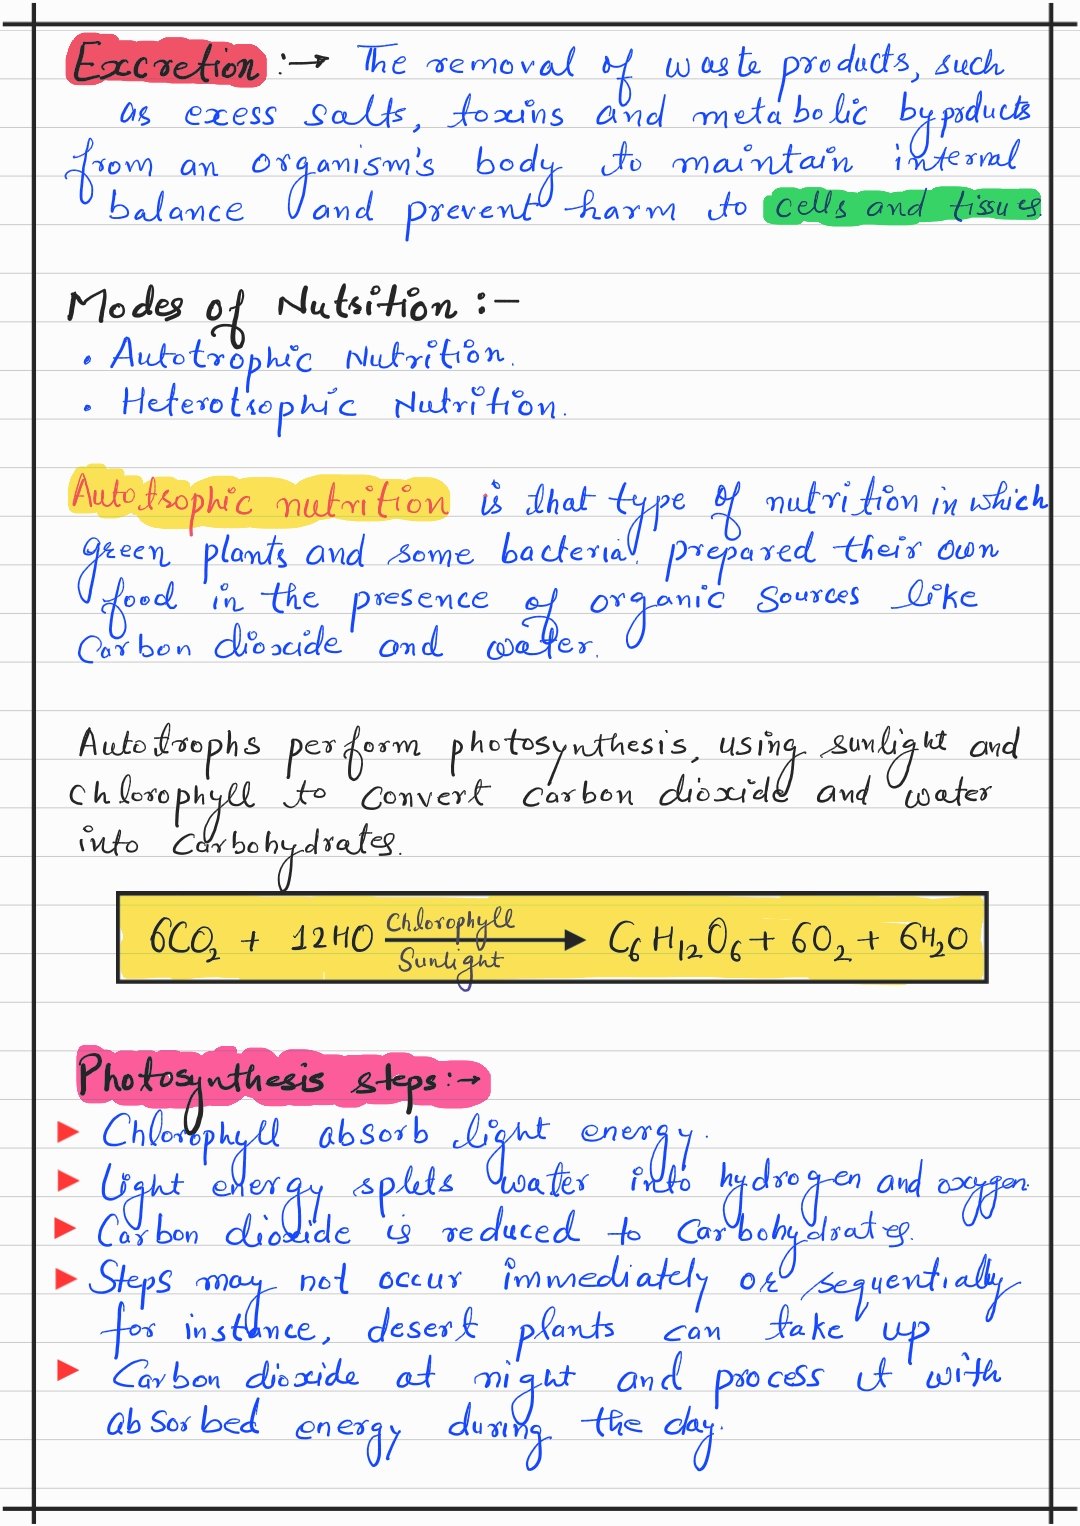 Excretion :→ The removal of waste products, such
as excess salts, toxins and metabolic byproducts
from an organism's body to maintain internal
balance and prevent harm to cells and tissues.
Modes of Nutsition :-
• Autotrophic Nutrition.
• Heterotsophic Nutrition.
Autotsophic nutrition is that type of nutrition in which
green plants and some bacteria. prepared their own
food in the presence of organic sources like
Carbon dioxide and water.
Autotrophs perform photosynthesis, using sunlight and
chlorophyll to convert carbon dioxide and water
into carbohydrates.
6CO₂ + 12HO Chlorophyll Sunlight → C₆H₁₂O₆ + 6O₂ + 6H₂O
Photosynthesis steps :→
▶ Chlorophyll absorb light energy.
▶ Light energy splits water into hydrogen and oxygen.
▶ Carbon dioxide is reduced to carbohydrates.
▶ Steps may not occur immediately or sequentially
for instance, desert plants can take up
▶ Carbon dioxide at night and process it with
absorbed energy during the day.